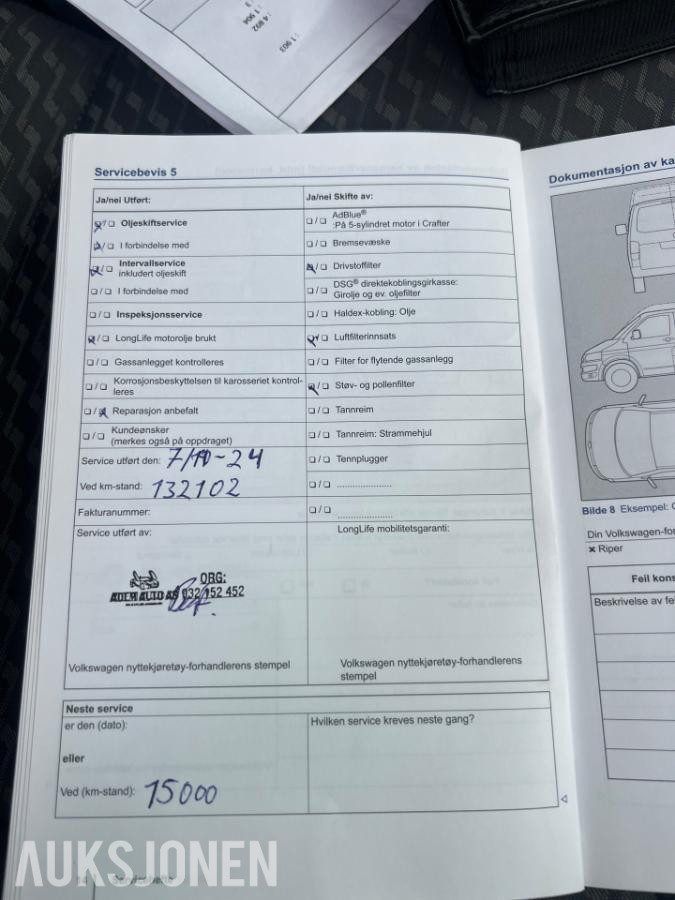 1 903
4 892
1 904
Servicebevis 5
Ja/nei Utført:
☒/❏ Oljeskiftservice
☒/❏ I forbindelse med
☒/❏ Intervallservice
inkludert oljeskift
❏/❏ I forbindelse med
❏/❏ Inspeksjonsservice
☒/❏ LongLife motorolje brukt
❏/❏ Gassanlegget kontrolleres
❏/❏ Korrosjonsbeskyttelsen til karosseriet kontrol-
leres
❏/☒ Reparasjon anbefalt
❏/❏ Kundeønsker
(merkes også på oppdraget)
Service utført den: 7/10-24
Ved km-stand: 132102
Fakturanummer:
Service utført av:
ORG:
ADEM AUTO AS 932 152 452
Volkswagen nyttekjøretøy-forhandlerens stempel
Ja/nei Skifte av:
❏/❏ AdBlue®
:På 5-sylindret motor i Crafter
❏/❏ Bremsevæske
☒/❏ Drivstoffilter
❏/❏ DSG® direktekoblingsgirkasse:
Girolje og ev. oljefilter
❏/❏ Haldex-kobling: Olje
☒/❏ Luftfilterinnsats
❏/❏ Filter for flytende gassanlegg
☒/❏ Støv- og pollenfilter
❏/❏ Tannreim
❏/❏ Tannreim: Strammehjul
❏/❏ Tennplugger
❏/❏ ....................
❏/❏ ....................
LongLife mobilitetsgaranti:
Volkswagen nyttekjøretøy-forhandlerens
stempel
Neste service
er den (dato):
eller
Ved (km-stand): 15000
Hvilken service kreves neste gang?
Dokumentasjon av ka
Bilde 8 Eksempel:
Din Volkswagen-for
× Riper
Feil kons
Beskrivelse av fe
AUKSJONEN